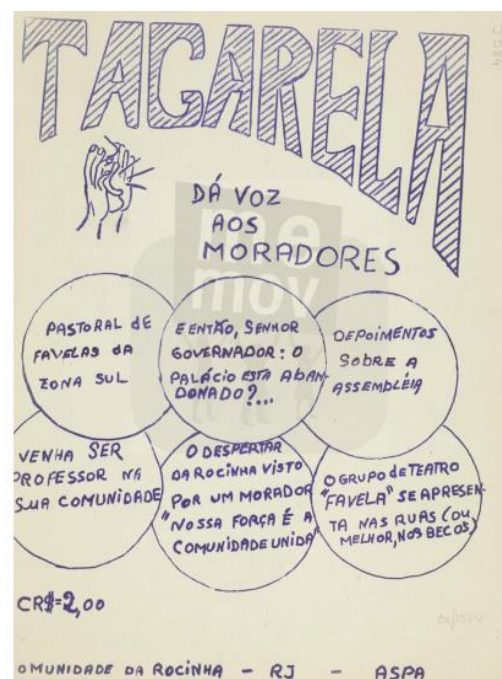 TAGARELA
DÁ VOZ
AOS
MORADORES
PASTORAL DE
FAVELAS DA
ZONA SUL
E ENTÃO, SENHOR
GOVERNADOR: O
PALÁCIO ESTA ABAN-
DONADO?...
DEPOIMENTOS
SOBRE A
ASSEMBLÉIA
VENHA SER
PROFESSOR NA
SUA COMUNIDADE
O DESPERTAR
DA ROCINHA VISTO
POR UM MORADOR
"NOSSA FORÇA É A
COMUNIDADE UNIDA"
O GRUPO de TEATRO
"FAVELA" SE APRESEN-
TA NAS RUAS (OU,
MELHOR, NOS BECOS)
CR$=2,00
OMUNIDADE DA ROCINHA - RJ - ASPA
me
mov